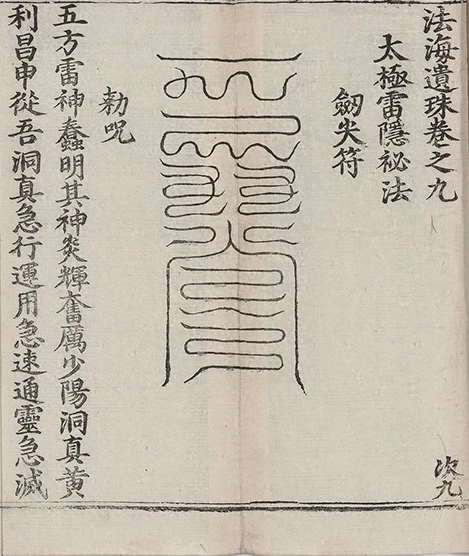 法海遺珠卷之九
太極雷隱祕法
劒尖符
勑呪
五方雷神蠢明其神炎輝奮厲少陽洞真黃
利昌申從吾洞真急行運用急速通靈急滅
㳄九